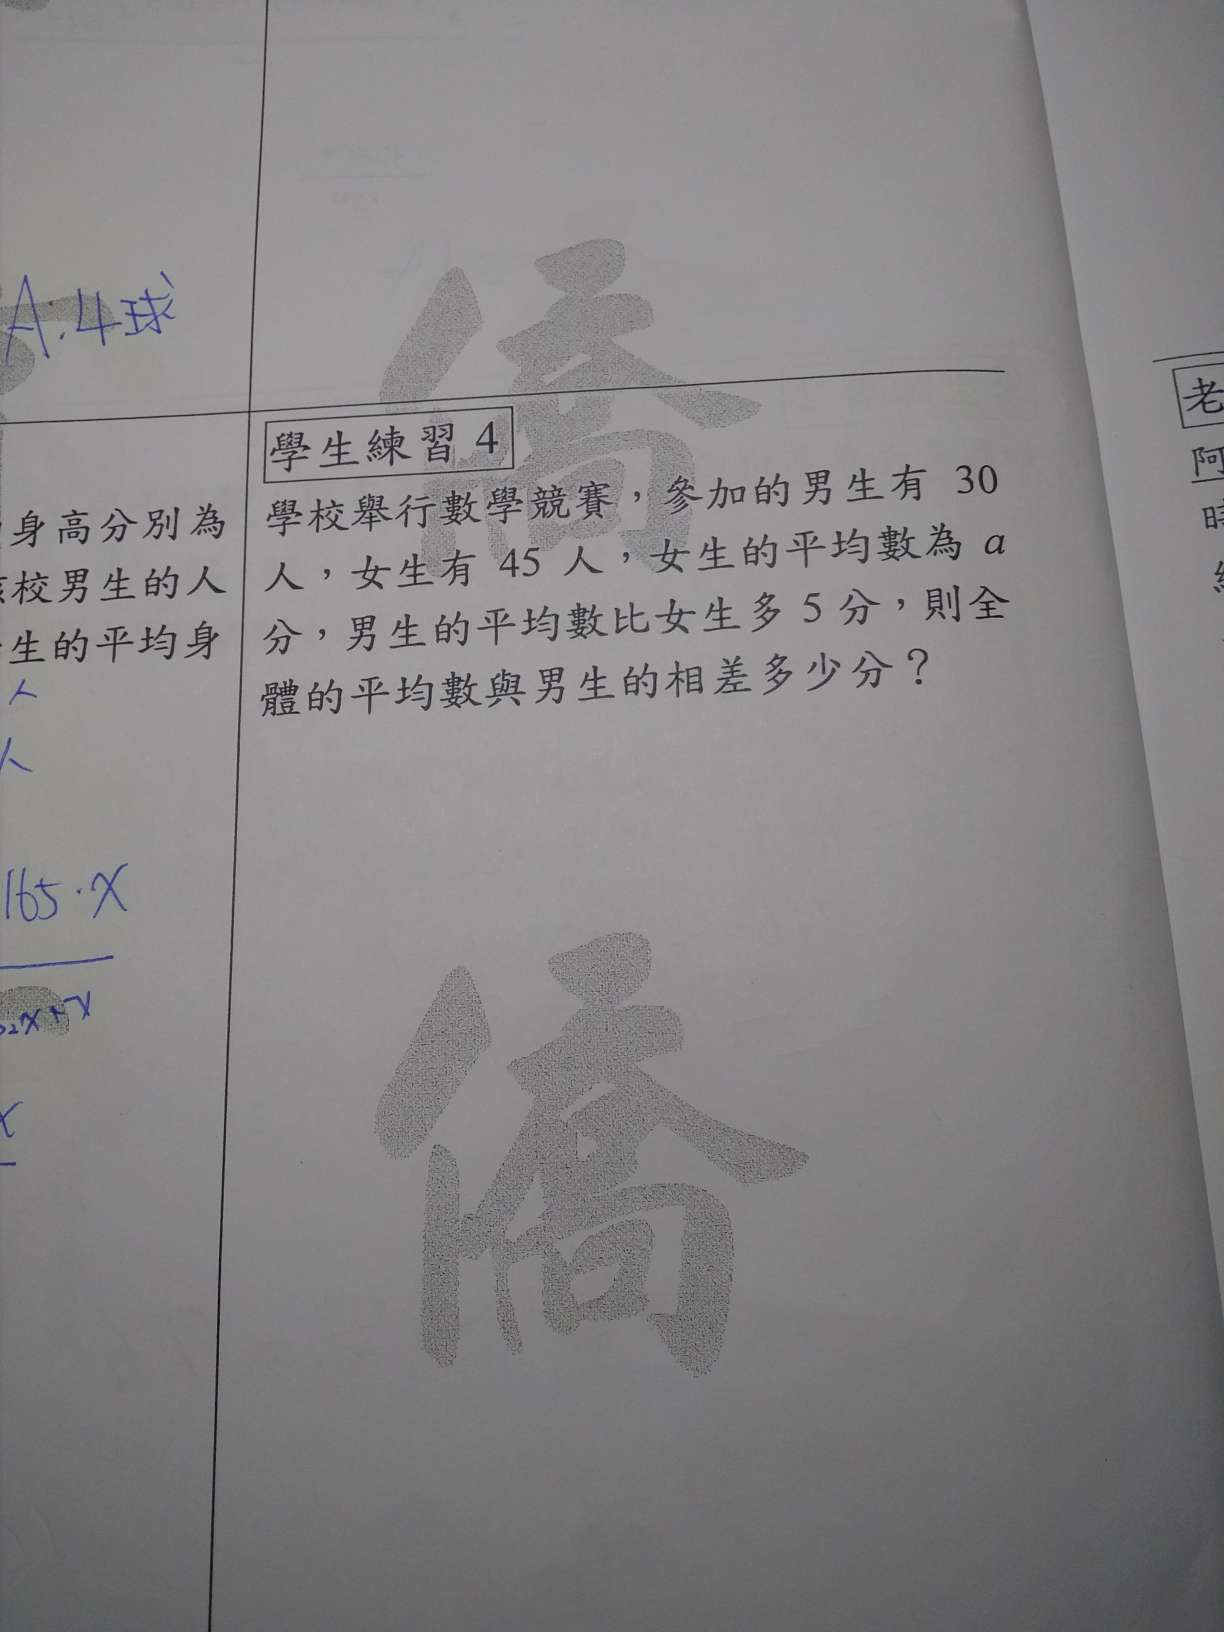 A:4球
身高分別為
校男生的人
生的平均身
人
人
165·X
學生練習 4
學校舉行數學競賽，參加的男生有 30
人，女生有 45 人，女生的平均數為 a
分，男生的平均數比女生多 5 分，則全
體的平均數與男生的相差多少分？
僑
僑
老
阿